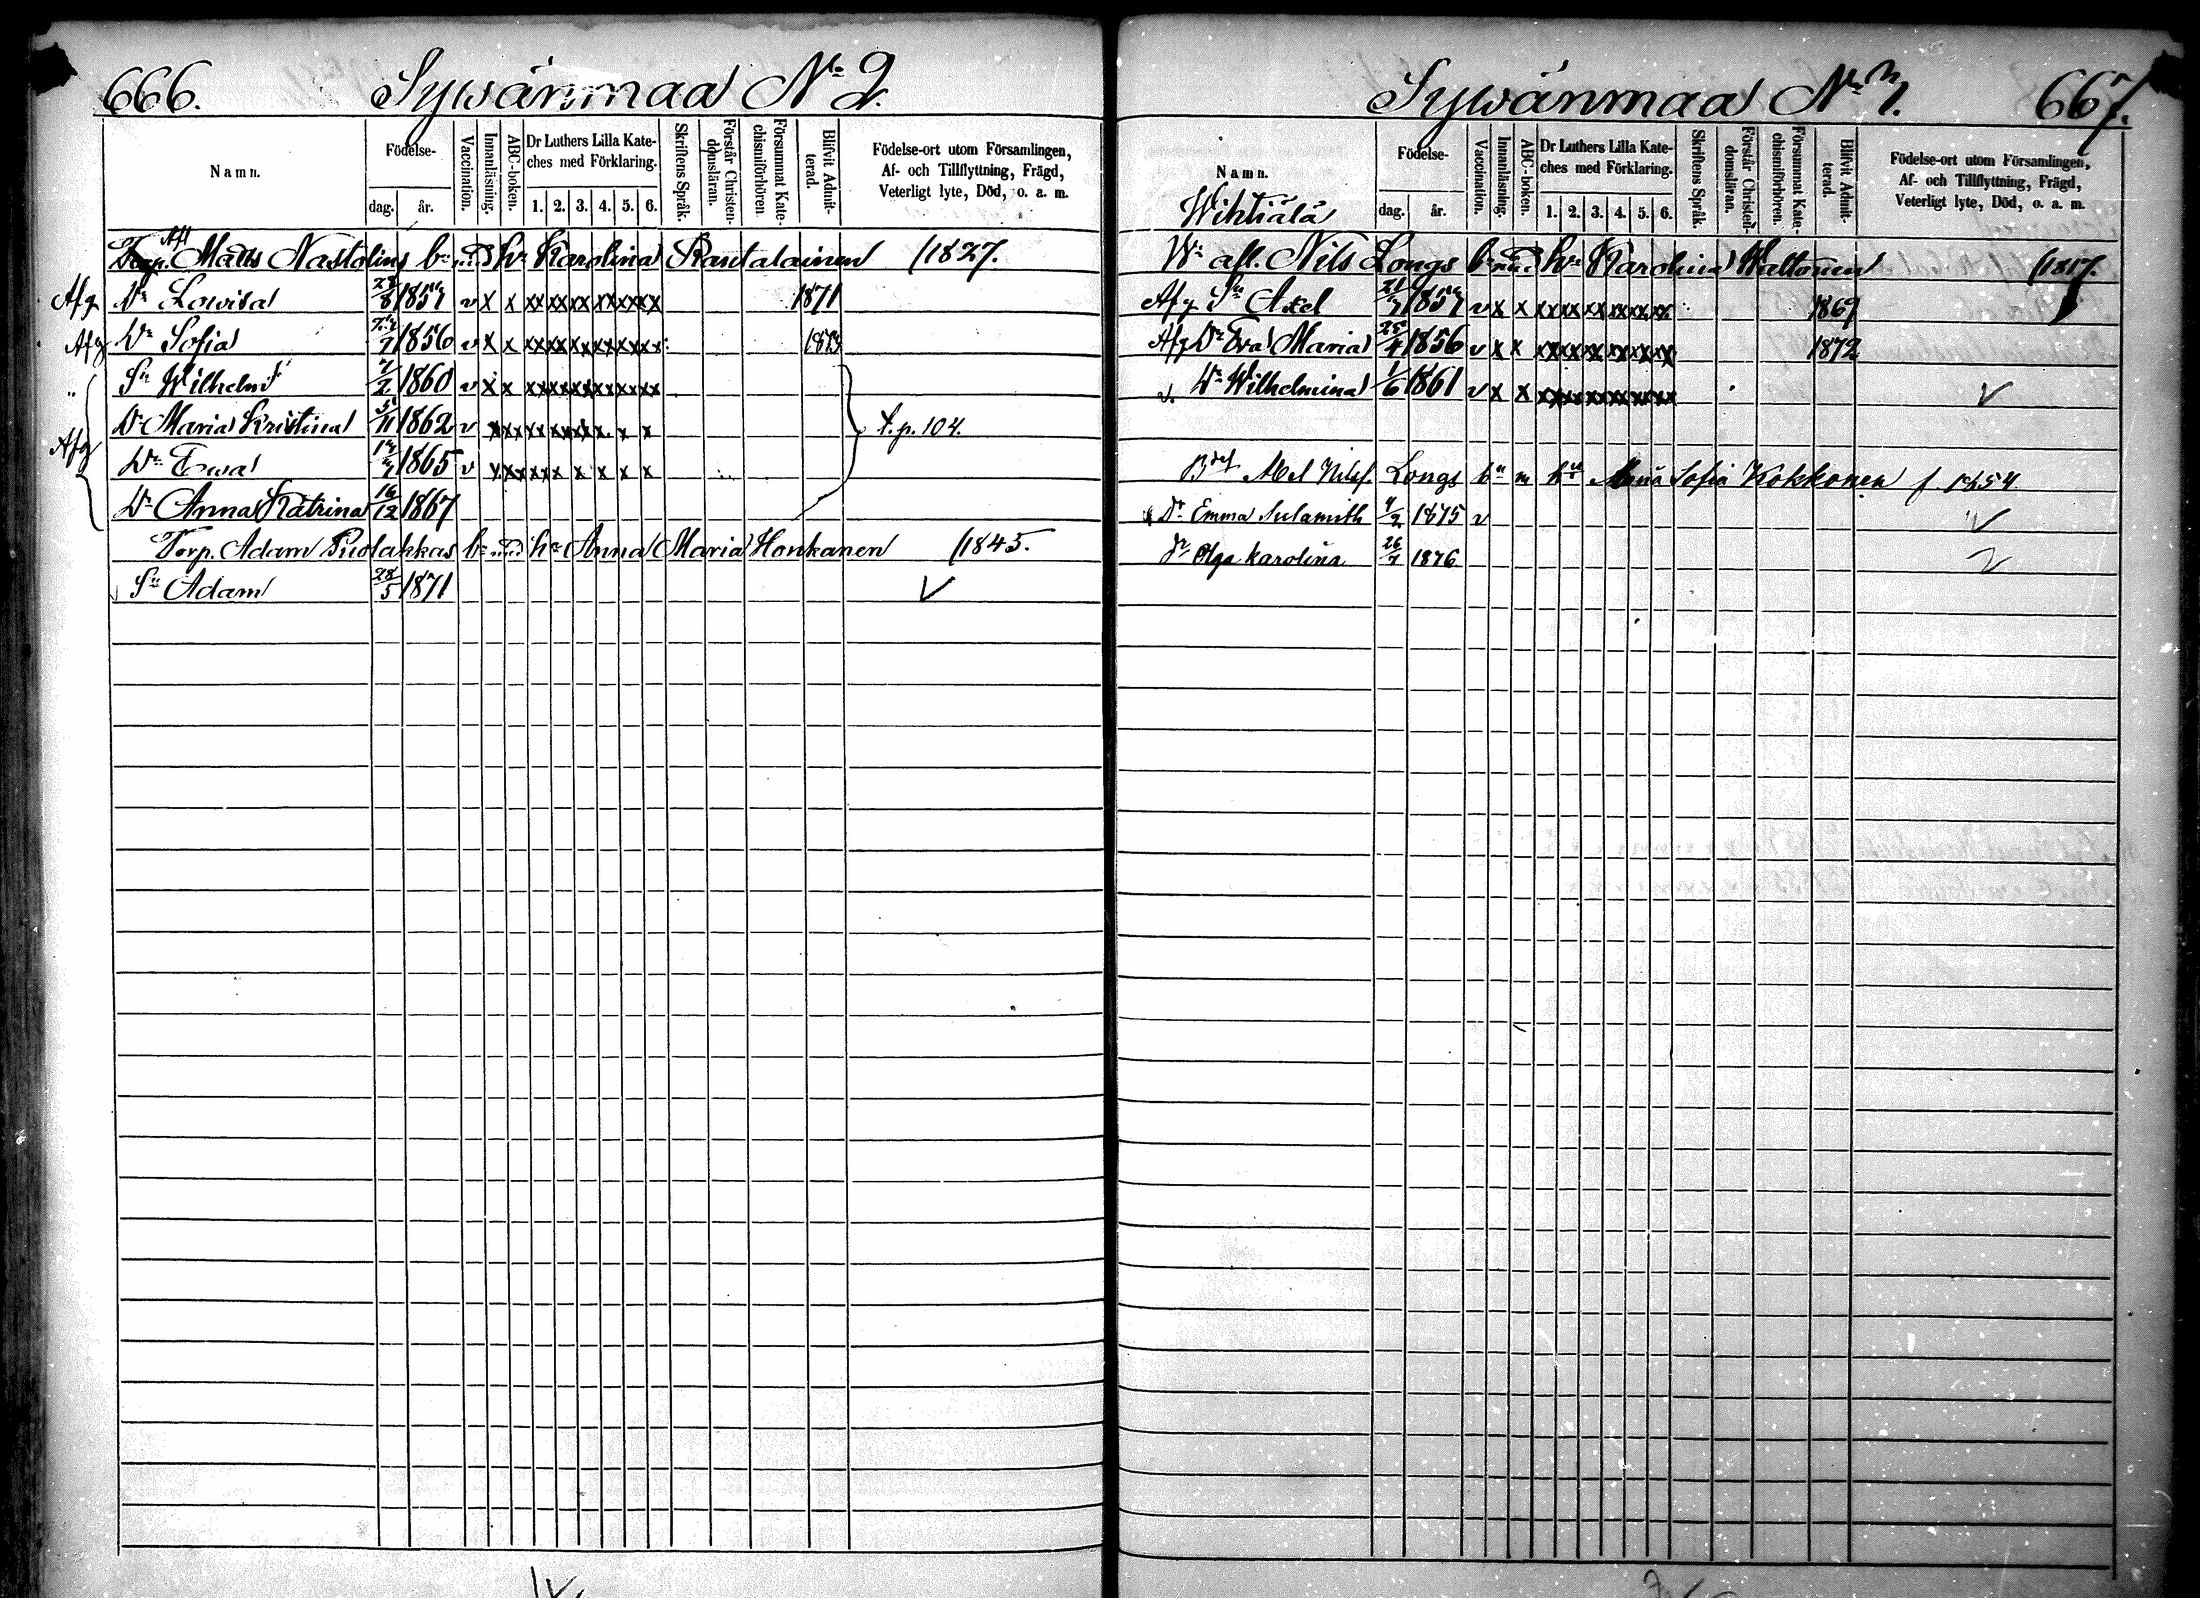 666. Sywänmaa No 2.
Namn.
Födelse-
dag. år.
Vaccination.
Innanläsning.
ABC-boken.
Dr Luthers Lilla Kate-
ches med Förklaring.
1. 2. 3. 4. 5. 6.
Skriftens Språk.
Förstår Christen-
domsläran.
Försummat Kate-
chismiförhören.
Blifvit Admit-
terad.
Födelse-ort utom Församlingen,
Af- och Tillflyttning, Frägd,
Veterligt lyte, Död, o. a. m.
Afl
Matts Nastolins bn med hu Karolina Rautalainen /1827.
Afg Dr Lovisa 1857 v x x xx xx xx xx xx xx 1871
Afg Dr Sofia 1856 v x x xx xx xx xx xx xx 1873
" Sn Wilhelm 7/2 1860 v x x xx xx xx xx xx xx
Dr Maria Kristina 1862 v t.p. 104.
Afg Dr Ewa 1865 v
Dr Anna Katrina 16/12 1867
Torp. Adam Puolakkas bn med hu Anna Maria Honkanen /1845.
Sn Adam 28/5 1871 v
Sywänmaa No 667.
Namn.
Födelse-
dag. år.
Vaccination.
Innanläsning.
ABC-boken.
Dr Luthers Lilla Kate-
ches med Förklaring.
1. 2. 3. 4. 5. 6.
Skriftens Språk.
Förstår Christen-
domsläran.
Försummat Kate-
chismiförhören.
Blifvit Admit-
terad.
Födelse-ort utom Församlingen,
Af- och Tillflyttning, Frägd,
Veterligt lyte, Död, o. a. m.
Wihtiälä
afl. Nils Longs bn med hu Karolina Waltonen /1817.
Afg Sn Axel 1857 v x x xx xx xx xx xx xx 1869
Afg Dr Eva Maria 25/4 1856 v x x xx xx xx xx xx xx 1872
v. Dr Wilhelmina 1/6 1861 v x x xx xx xx xx xx xx v
Nilsf. Longs bn m hu Sofia Kokkonen f 1854
Dr Emma Sulamith 4/2 1875 v v
dr Olga Karolina 26/7 1876 v